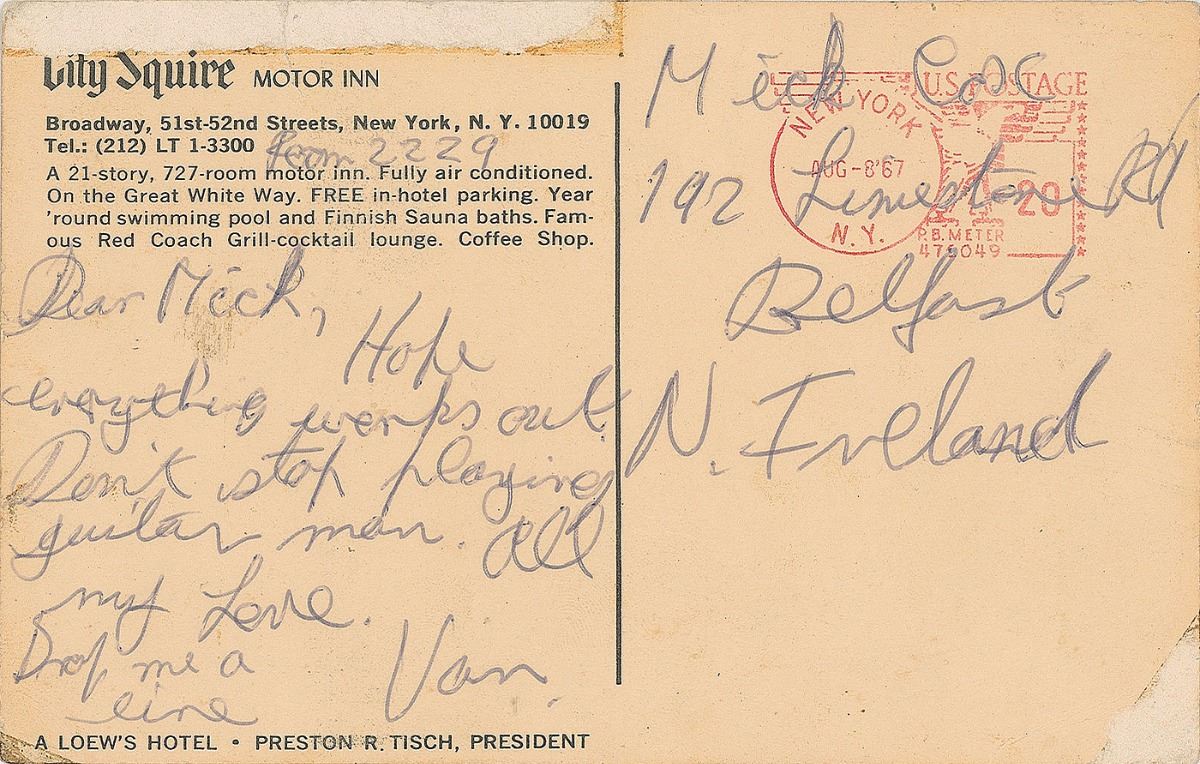 City Squire MOTOR INN
Broadway, 51st-52nd Streets, New York, N. Y. 10019
Tel.: (212) LT 1-3300 Room 2229
A 21-story, 727-room motor inn. Fully air conditioned.
On the Great White Way. FREE in-hotel parking. Year
'round swimming pool and Finnish Sauna baths. Fam-
ous Red Coach Grill-cocktail lounge. Coffee Shop.
Dear Mick,
Hope
everything works out.
Don't stop playing
guitar man. All
my Love.
Drop me a
line
Van.
A LOEW'S HOTEL • PRESTON R. TISCH, PRESIDENT
Mick Cox
192 Limestone Rd
Belfast
N. Ireland
U.S. POSTAGE
NEW YORK
AUG-8'67
N.Y.
20
P.B. METER